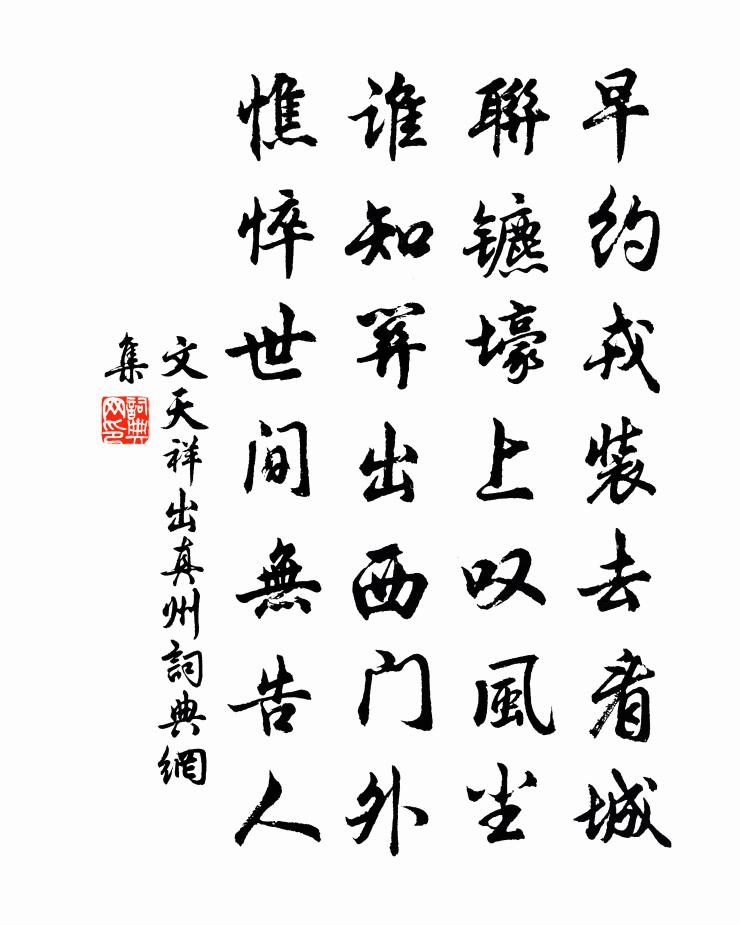 早约戎装去看城
聯镳壕上叹風尘
谁知關出西门外
憔悴世间無告人
文天祥出真州詞典網
集
詞典
网印